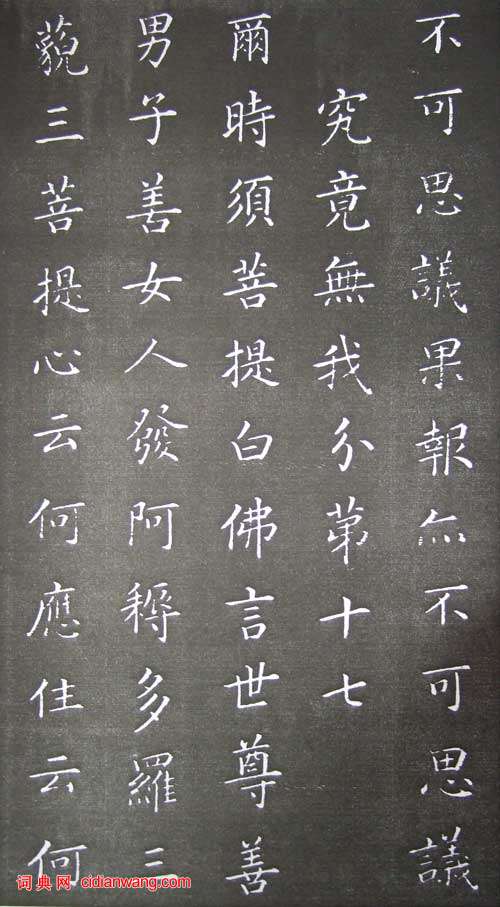 不可思議果報亦不可思議
究竟無我分第十七
爾時須菩提白佛言世尊善
男子善女人發阿耨多羅三
藐三菩提心云何應住云何
词典网 cidianwang.com